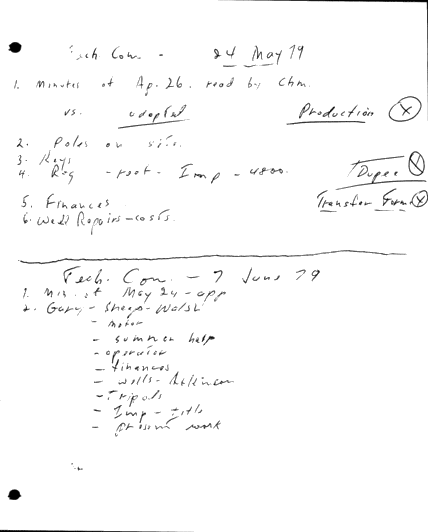 Tech Com. - 24 May 79
1. Minutes of Ap. 26. read by Chm.
vs. adopted Production X
2. Poles on site.
3. Keys
4. Reg - root - Imp - 4800. Dupee X
5. Finances Transfer Form X
6. Well Repairs - costs.
Tech. Com. - 7 June 79
1. Min. of May 24 - app
2. Gary - Shego - Walsh
- motor
- summer help
- operator
- finances
- wells - Atkinson
- Tripods
- Imp - title
- present work